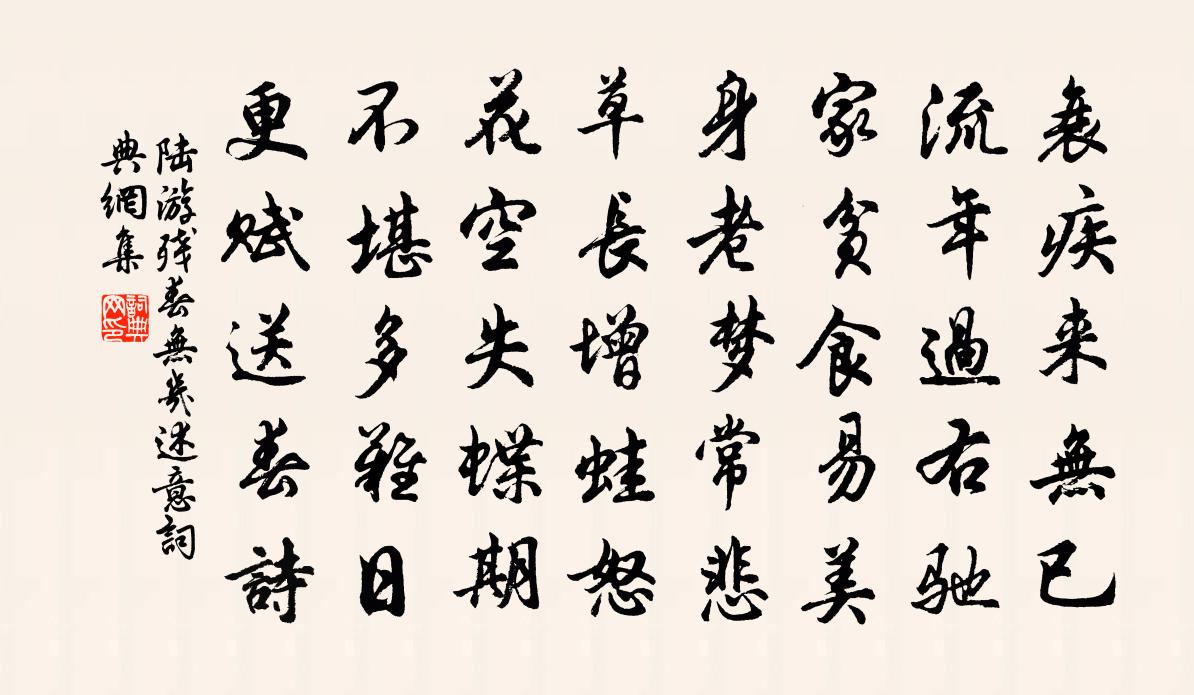 衰疾来無已
流年過右馳
家貧食易美
身老梦常悲
草長增蛙怒
花空失蝶期
不堪多難日
更賦送春詩
陆游残春無幾述意詞
典網集
詞典
网印